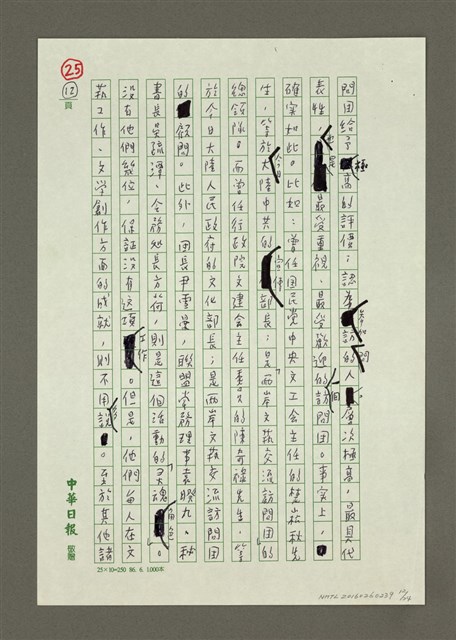 25
12
頁
問團給予極高的評價；認為參加訪問的人層次極高，最具代
表性，也是最受重視、最受歡迎的一個訪問團。事實上，
確實如此。比如：曾任國民黨中央文工會主任的楚崧秋先
生，等於今日大陸中共的宣傳部長；是兩岸文藝交流訪問團的
總領隊。而曾任行政院文建會主任委員的陳奇祿先生，等
於今日大陸人民政府的文化部長；是兩岸文藝交流訪問團
的顧問。此外，團長尹雪曼，聯盟常務理事袁睽九，秘
書長吳疏潭，會務處長方荷，則是這個活動的「靈魂」角色。
沒有他們幾位，保証沒有這項工作。但是，他們留人在文
藝工作、文學創作方面的成就，則不用多說。至於其他諸
中華日報
敬贈
25×10=250 86. 6. 1,000本
NMTL20160260239
12/14